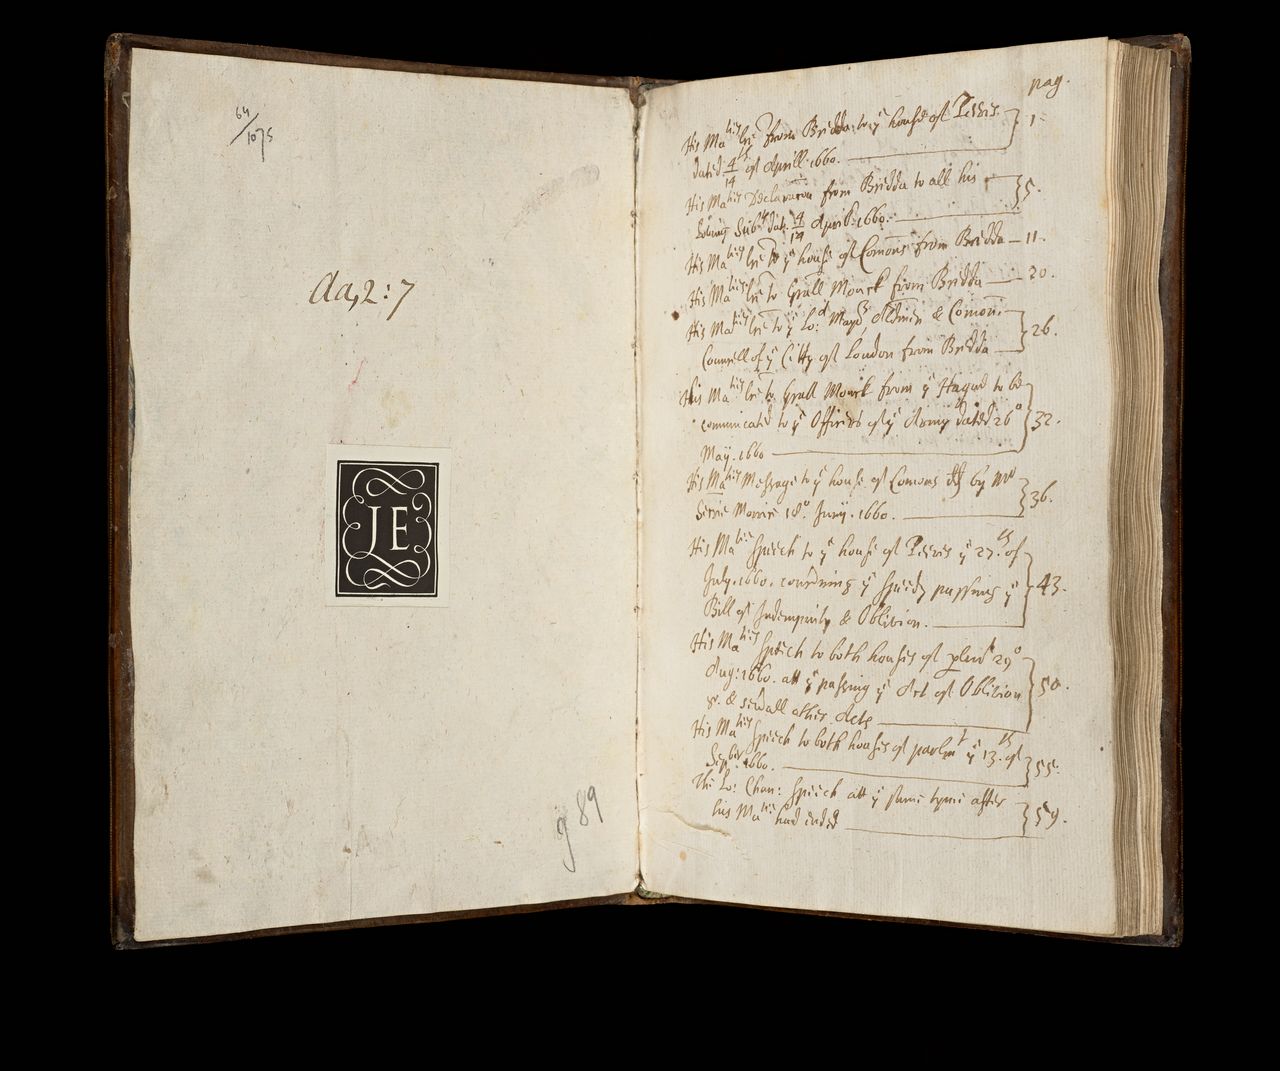 64/1075
Aa,2:7
JE
g 89
pag.
His Ma^ties lre from Bredda to y^e house of Peeres
dated 4/14^th of Aprill. 1660. } 1.
His Ma^ties Declaracon from Bredda to all his
loving Sub^ts dat. 4/14 April. 1660. } 5.
His Ma^ties lre to y^e house of Comons from Bredda — 11.
His Ma^ties lre to Gen̄all Monck from Bredda — 20.
His Ma^ties lre to y^e Lo: May^r, Aldmen & Comon
Councell of y^e Citty of London from Bredda } 26.
His Ma^ties lre to Gen̄all Monck from y^e Hague to be
comunicated to y^e Officers of y^e Army dated 26°
May. 1660 } 32.
His Ma^ties Message to y^e house of Comons by M^r
Secrie Morrice 18° Juny. 1660. } 36.
His Ma^ties speech to y^e house of Peeres y^e 27^th of
July. 1660. concerning y^e speedy passing y^e
Bill of Indempnity & Oblivion. } 43.
His Ma^ties speech to both houses of parlem^t 29°
Aug: 1660. att y^e passing y^e Act of Oblivion
&. & sevall other Acts } 50.
His Ma^ties speech to both houses of parlm^t y^e 13^th of
Sep^ber 1660. } 55.
The Lo: Chan: speech att y^e same tyme after
his Ma^tie had ended } 59.